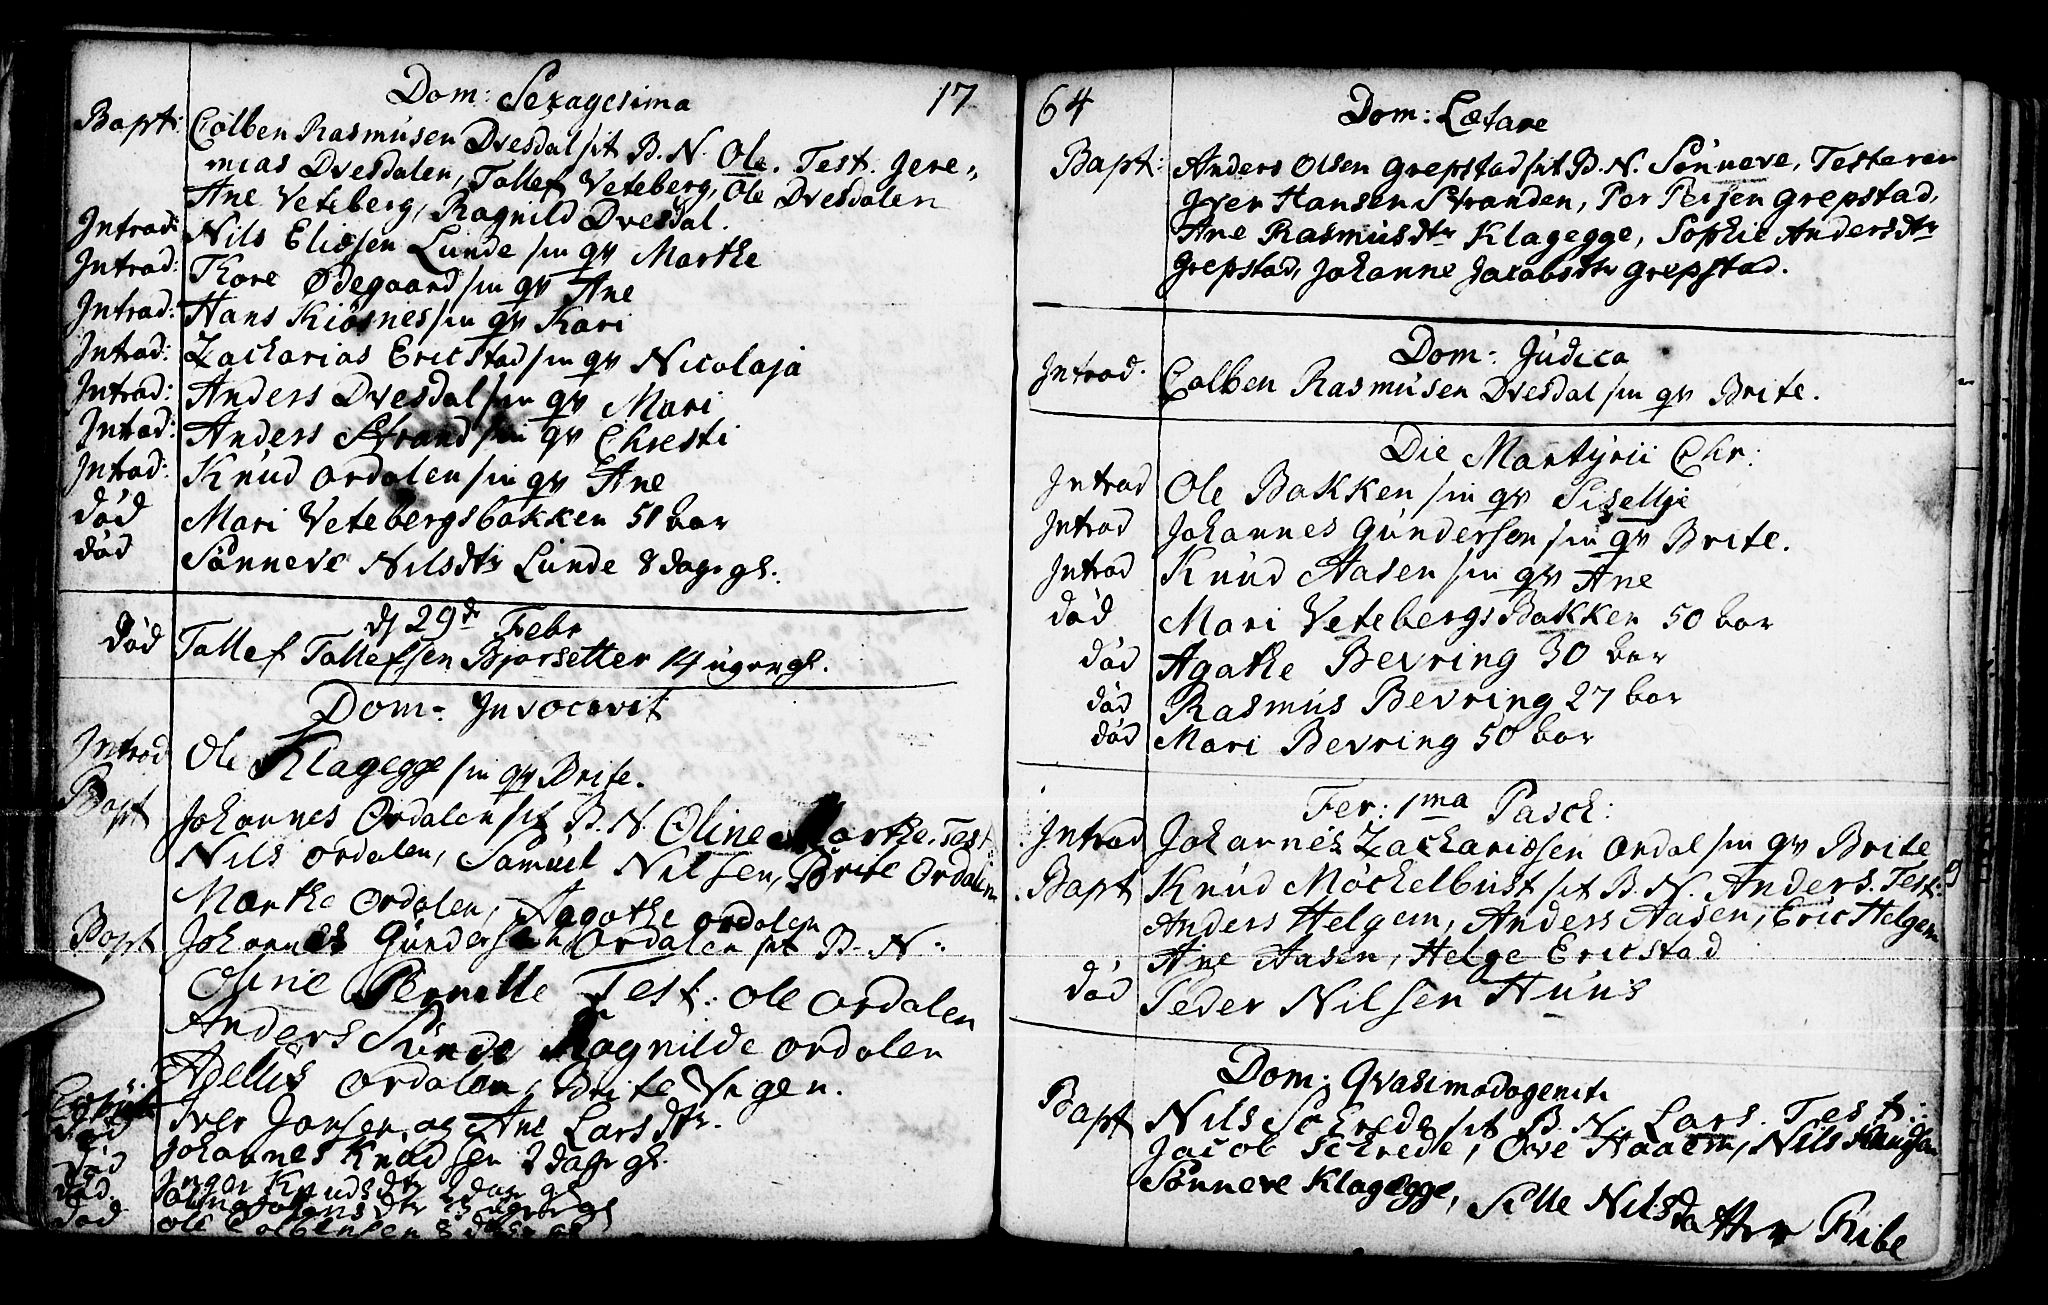 17
Dom: Sexagesima
Bapt: Colben Rasmusen Dvesdal sit B. N. Ole. Test. Jere-
mias Dvesdalen, Tollef Veteberg, Ole Dvesdalen
Ane Veteberg, Ragnild Dvesdal.
Introd: Nils Eliæsen Lunde sin qv Marthe
Introd: Thore Ødegaard sin qv Ane
Introd: Hans Kiøsnes sin qv Kari
Introd: Zacharias Ericstad sin qv Nicolaja
Introd: Anders Dvesdal sin qv Mari
Introd: Anders Strand sin qv Chresti
Introd: Knud Ordalen sin qv Ane
død Mari Vetebergsbakken 51 aar
død Sønneve Nilsdtr Lunde 8 dage gl.
d 29de Febr
død Tollef Tollefsen Bjørsetter 14 uger gl.
Dom: Invocavit
Introd Ole Klagegge sin qv Brite.
Bapt Johannes Ordalen sit B. N. Oline Marthe. Test
Nils Ordalen, Samuel Nilsen, Brite Ordalen
Marthe Ordalen, Agathe Ordalen
Bapt Johannes Gundersen Ordalen sit B. N:
Oline Pernille Test: Ole Ordalen
Anders Sunde Ragnilde Ordalen
Ordalen, Brite
Iver Jonsen og Ane Larsdtr.
død Johannes Knudsen 2 dage gl.
død Inger Knudsdtr 2 dage gl
død.
død Ole Colbensen 8 dage gl
64
Dom: Lætare
Bapt: Anders Olsen Grepstad sit B. N. Sønneve, Testerer
Iver Hansen Stranden, Per Persen Grepstad,
Ane Rasmusdtr Klagegge, Sophie Andersdtr
Grepstad, Johanne Jacobsdtr Grepstad.
Dom: Judica
Introd. Colben Rasmusen Dvesdal sin qv Brite.
Die Martyrii Chr:
Introd Ole Bakken sin qv Sisellje
Introd Johannes Gundersen sin qv Brite.
Introd Knud Aasen sin qv Ane
død Mari Vetebergs Bakken 50 aar
død Agathe Bevring 30 aar
død Rasmus Bevring 27 aar
død Mari Bevring 50 aar
Fer: 1ma Pasch:
Introd Johannes Zachariæsen Ordal sin qv Brite
Bapt Knud Møckelbust sit B. N. Anders. Test:
Anders Helgem, Anders Aasen, Eric Helgem
Ane Aasen, Helge Ericstad
død Peder Nilsen Huus
Dom: Qvasimodogeniti
Bapt Nils Schrede sit B. N. Lars. Test:
Jacob Schrede, Ove Haaem, Nils
Sønneve Klagegge, Sille Nilsdatter Ribe